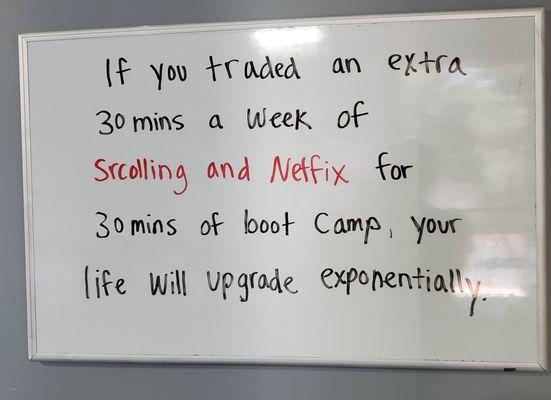 If you traded an extra
30 mins a week of
Srcolling and Netfix for
30 mins of boot Camp, your
life will upgrade exponentially.